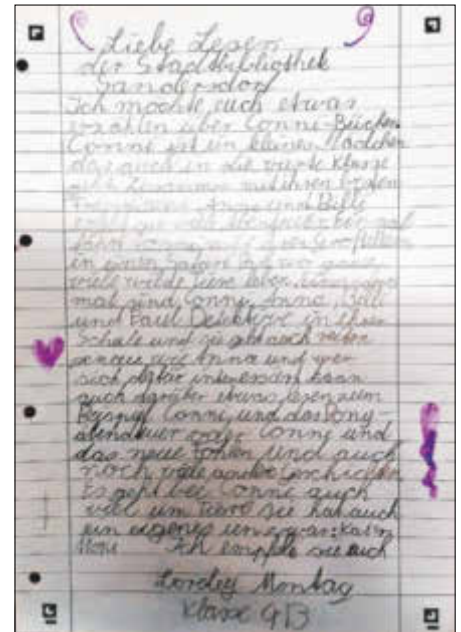 Liebe Lesen
der Stadtbibliothek
Sandersdorf
Ich möchte euch etwas
erzählen über Conni-Bücher.
Conni ist ein kleines Mädchen
das auch in die vierte Klasse
geht Zusammen mit ihren besten
Freundinnen Anna und Billi
erlebt sie
in einen Safari Park wo ganz
viele wilde Tiere leben
mal sind Conni, Anna, Billi
und Paul Detektive in ihrer
Schule und sie geht auch reiten
genau wie Anna und wer
sich dafür interessiert kann
auch darüber etwas lesen zum
Beispiel Conni und das Pony-
abenteuer oder Conni und
das neue Fohlen und auch
noch viele andere Geschichten
Es geht bei Conni auch
viel um Tiere sie hat auch
ein eigenes und zwar: Kater
Ich empfehle sie euch
Loreley Montag
Klasse 4B